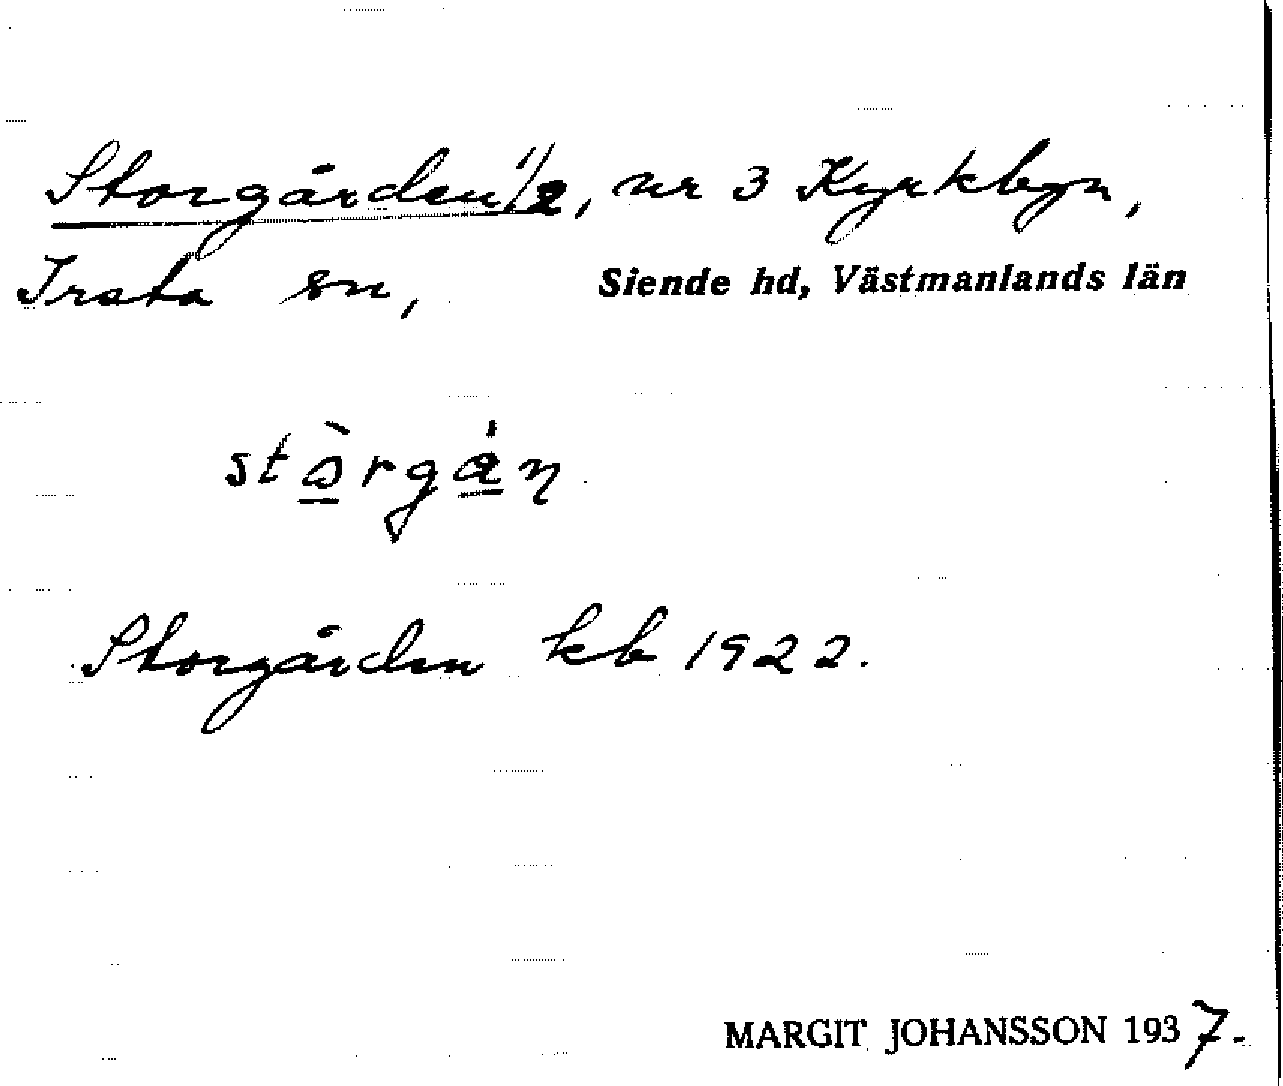 Storgården 1/2, nr 3 Kyrkbyn,
Irsta sn, Siende hd, Västmanlands län
Storgården kb 1922.
MARGIT JOHANSSON 1937.